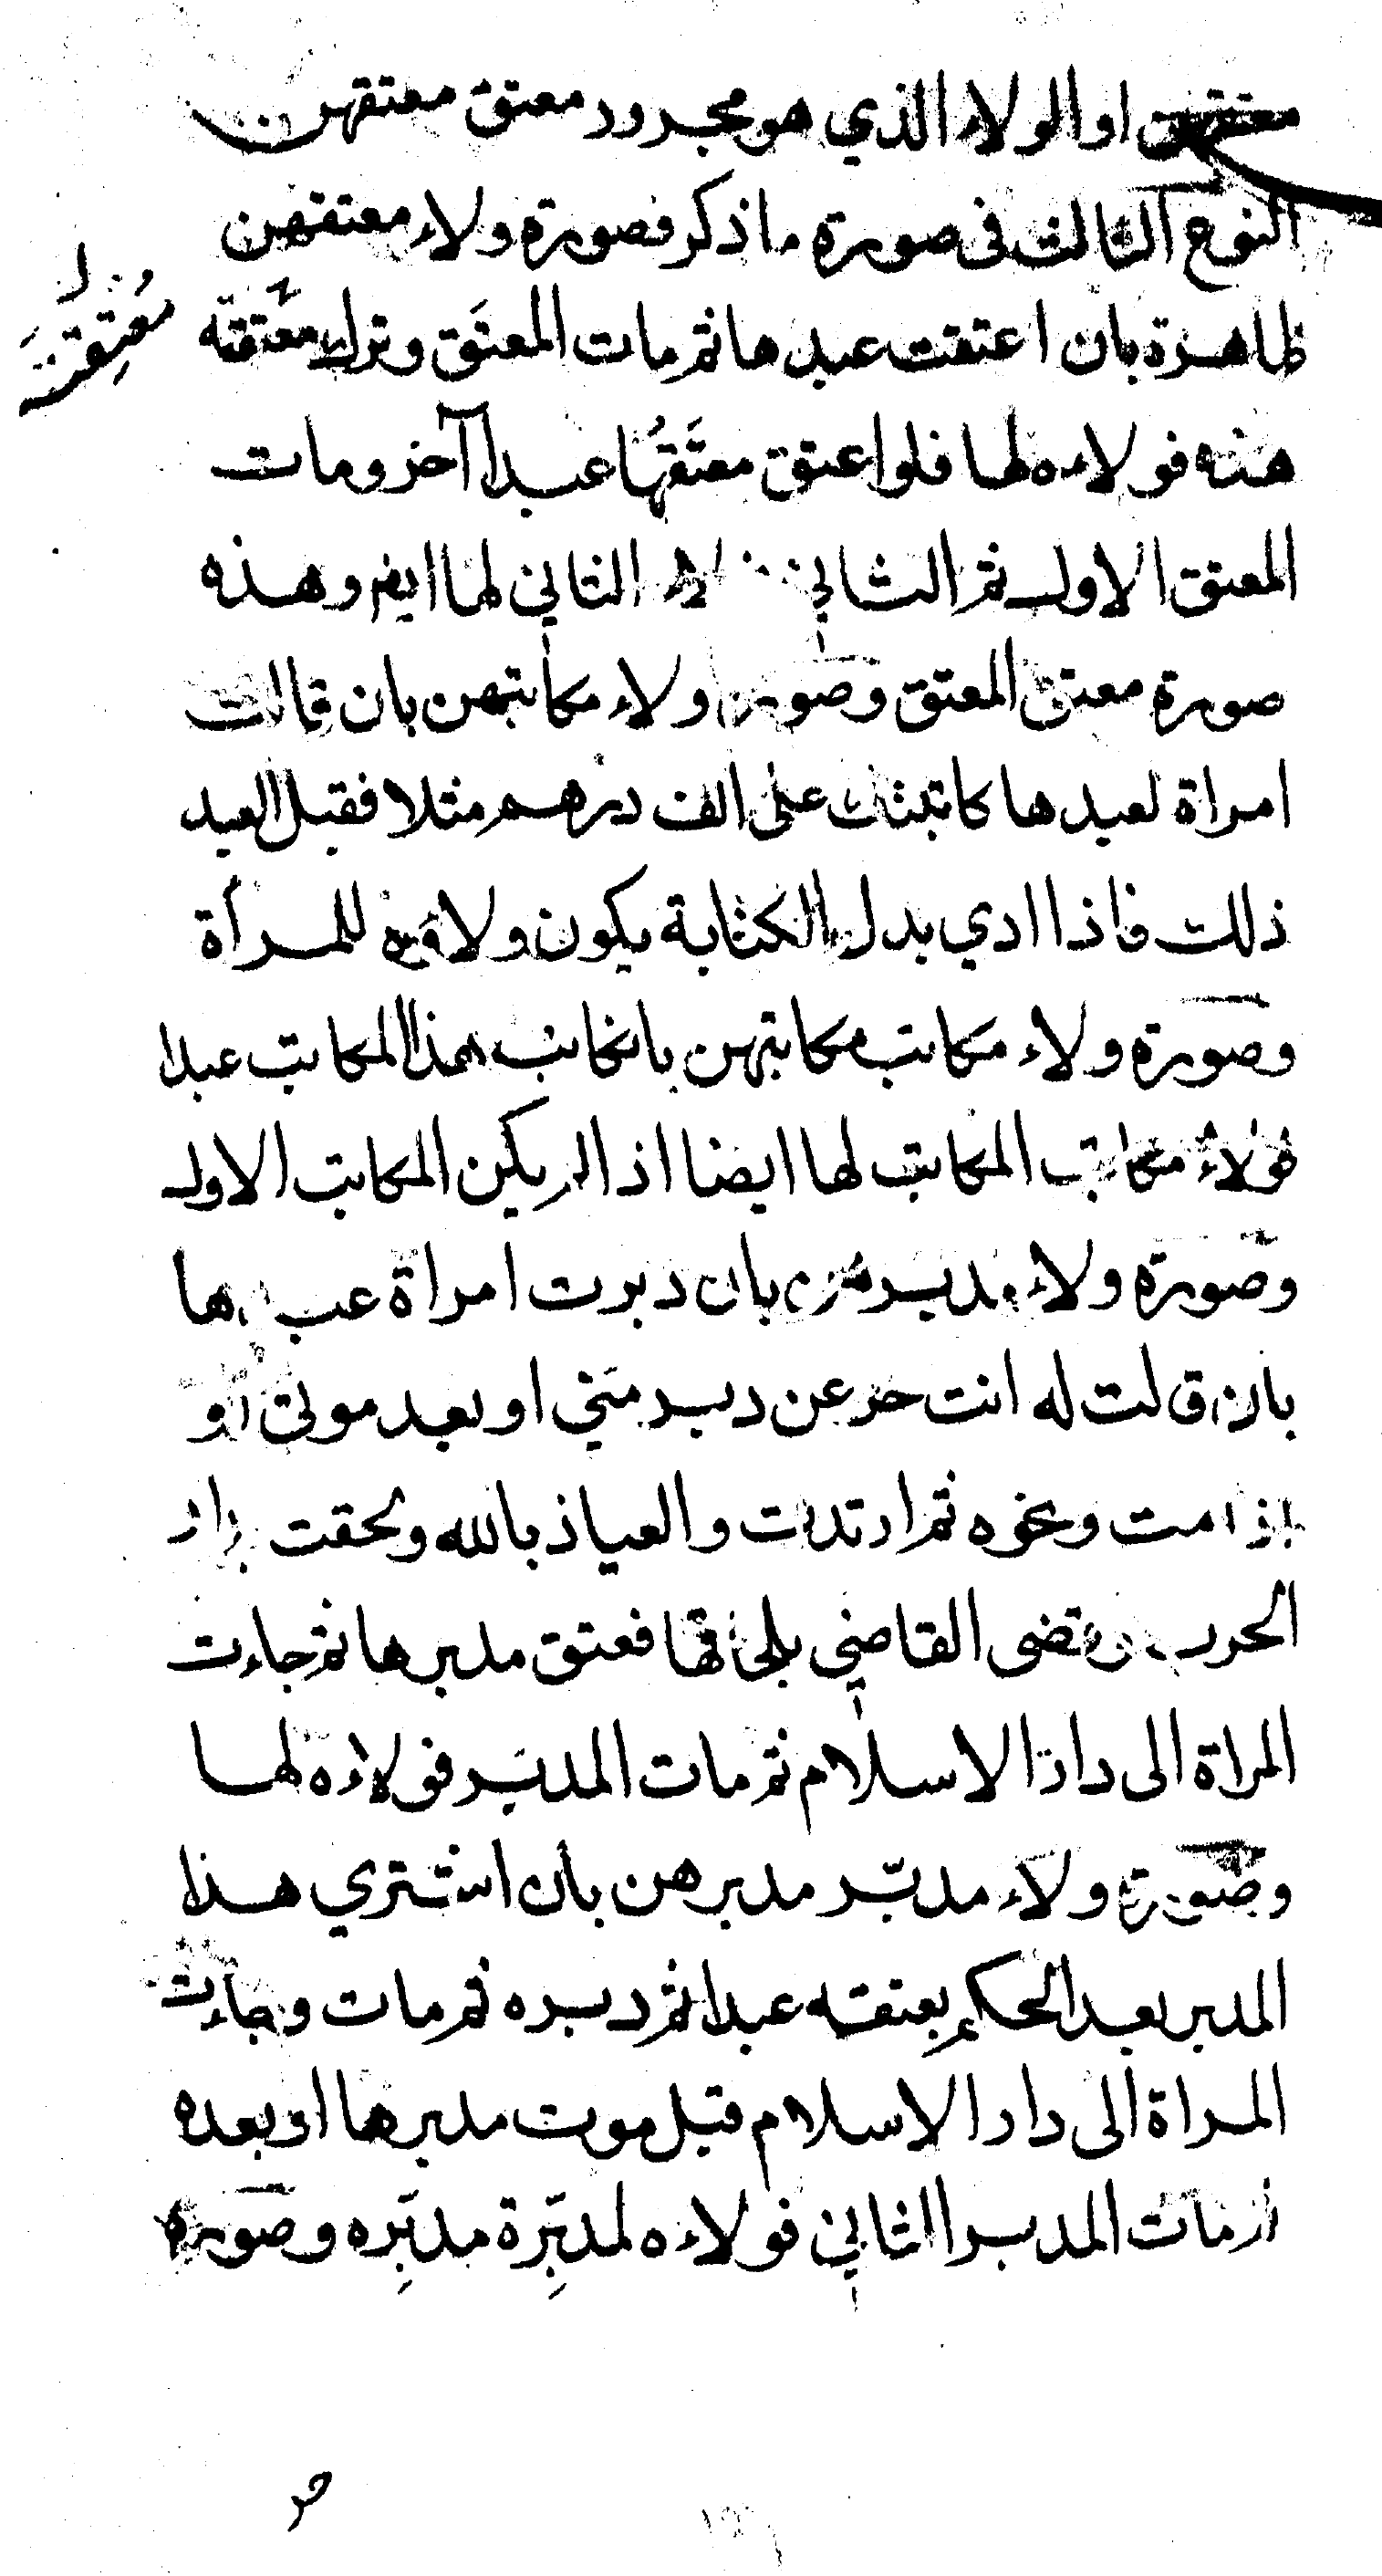 معتقهن او الولاء الذي هو مجرور معتق معتقهن
النوع الثالث فى صورة ما ذكر فصورة ولاء معتقهن
ظاهرة بان اعتقت عبدها ثم مات المعتَق وترك معتقة
معُتِقتَه
هذه فولاءه لها فلو اعتق معتَقهُا عبدا آخر ومات
المعتق الاول ثم الثاني الثاني لها ايض وهذه
صورة معتق المعتق وصورة ولاء مكاتبهن بان قالت
امراة لعبدها كاتبتك على الف درهم مثلا فقبل العبد
ذلك فاذا ادي بدل الكتابة يكون ولاؤه للمرأة
وصورة ولاء مكاتب مكاتبهن بان كاتب هذا المكاتب عبدا
فولاء مكاتب المكاتب لها ايضا اذا لم يكن المكاتب الاول
وصورة ولاء مدبرهن بان دبرت امراة عبدها
بان قالت له انت حر عن دبر منى او بعد موتى او
اذا مت ونحوه ثم ارتدت والعياذ بالله ولحقت بدار
الحرب وقضى القاضي بلحاقها فعتق مدبرها ثم جاءت
المراة الى دار الاسلام ثم مات المدبَر فولاءه لها
وصورة ولاء مدبّر مدبرهن بان اشتري هذا
المدبر بعد الحكم بعتقه عبدا ثم دبره ثم مات وجاءت
المراة الى دار الاسلام قبل موت مدبرها او بعده
ثم مات المدبر الثاني فولاءه لمدبِّرة مدبِّره وصورة